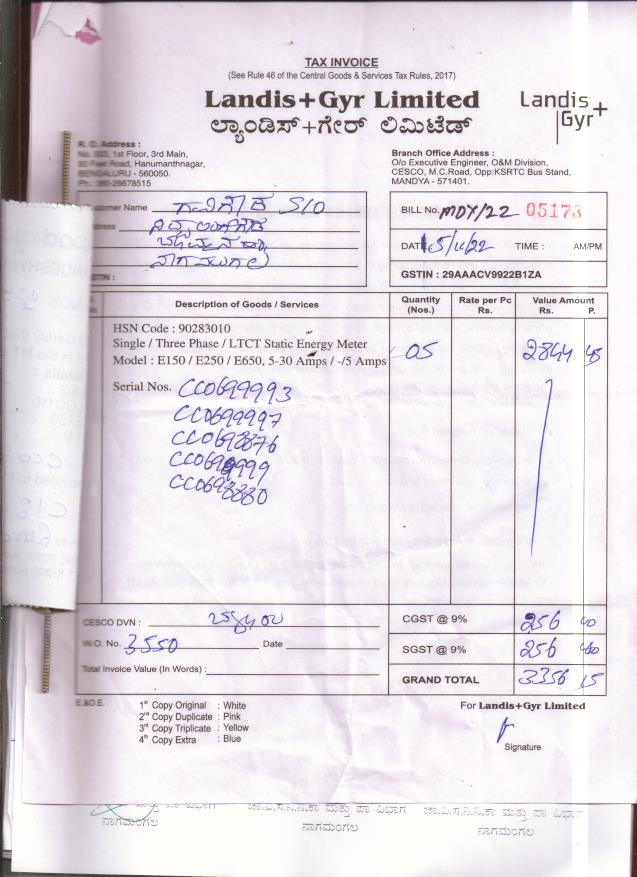 TAX INVOICE
(See Rule 46 of the Central Goods & Services Tax Rules, 2017)
Landis+Gyr Limited
ಲ್ಯಾಂಡಿಸ್+ಗೇರ್ ಲಿಮಿಟೆಡ್
Landis+
Gyr
R. O. Address :
No. 503, 1st Floor, 3rd Main,
50 Feet Road, Hanumanthnagar,
BENGALURU - 560050.
Ph.: 080-26678515
Branch Office Address :
O/o Executive Engineer, O&M Division,
CESCO, M.C.Road, Opp:KSRTC Bus Stand,
MANDYA - 571401.
Customer Name S/O
Address
ನಾಗಮಂಗಲ
GSTIN :
BILL No. MDY/22 05173
DATE 15/11/22 TIME : AM/PM
GSTIN : 29AAACV9922B1ZA
Description of Goods / Services
Quantity (Nos.)
Rate per Pc Rs.
Value Amount Rs. P.
HSN Code : 90283010
Single / Three Phase / LTCT Static Energy Meter
Model : E150 / E250 / E650, 5-30 Amps / -/5 Amps 05 2844 45
Serial Nos. CC0699993
CC0699997
CC0698876
CC0698880
CESCO DVN :
W.O. No. 3550 Date
Total Invoice Value (In Words) :
CGST @ 9% 256 40
SGST @ 9% 256 40
GRAND TOTAL 3356 15
E.&O.E.
1st Copy Original : White
2nd Copy Duplicate : Pink
3rd Copy Triplicate : Yellow
4th Copy Extra : Blue
For Landis+Gyr Limited
Signature
ಮತ್ತು ಪಾ ವಿಭಾಗ ಜಾ.ವಿ.ಸ.ನಿ.ನಿ.ಕಾ ಮತ್ತು ಪಾ ವಿಭಾಗ ಚಾ.ವಿ.ಸ.ನಿ.ನಿ.ಕಾ ಮತ್ತು ಪಾ ವಿಭಾಗ
ನಾಗಮಂಗಲ ನಾಗಮಂಗಲ ನಾಗಮಂಗಲ